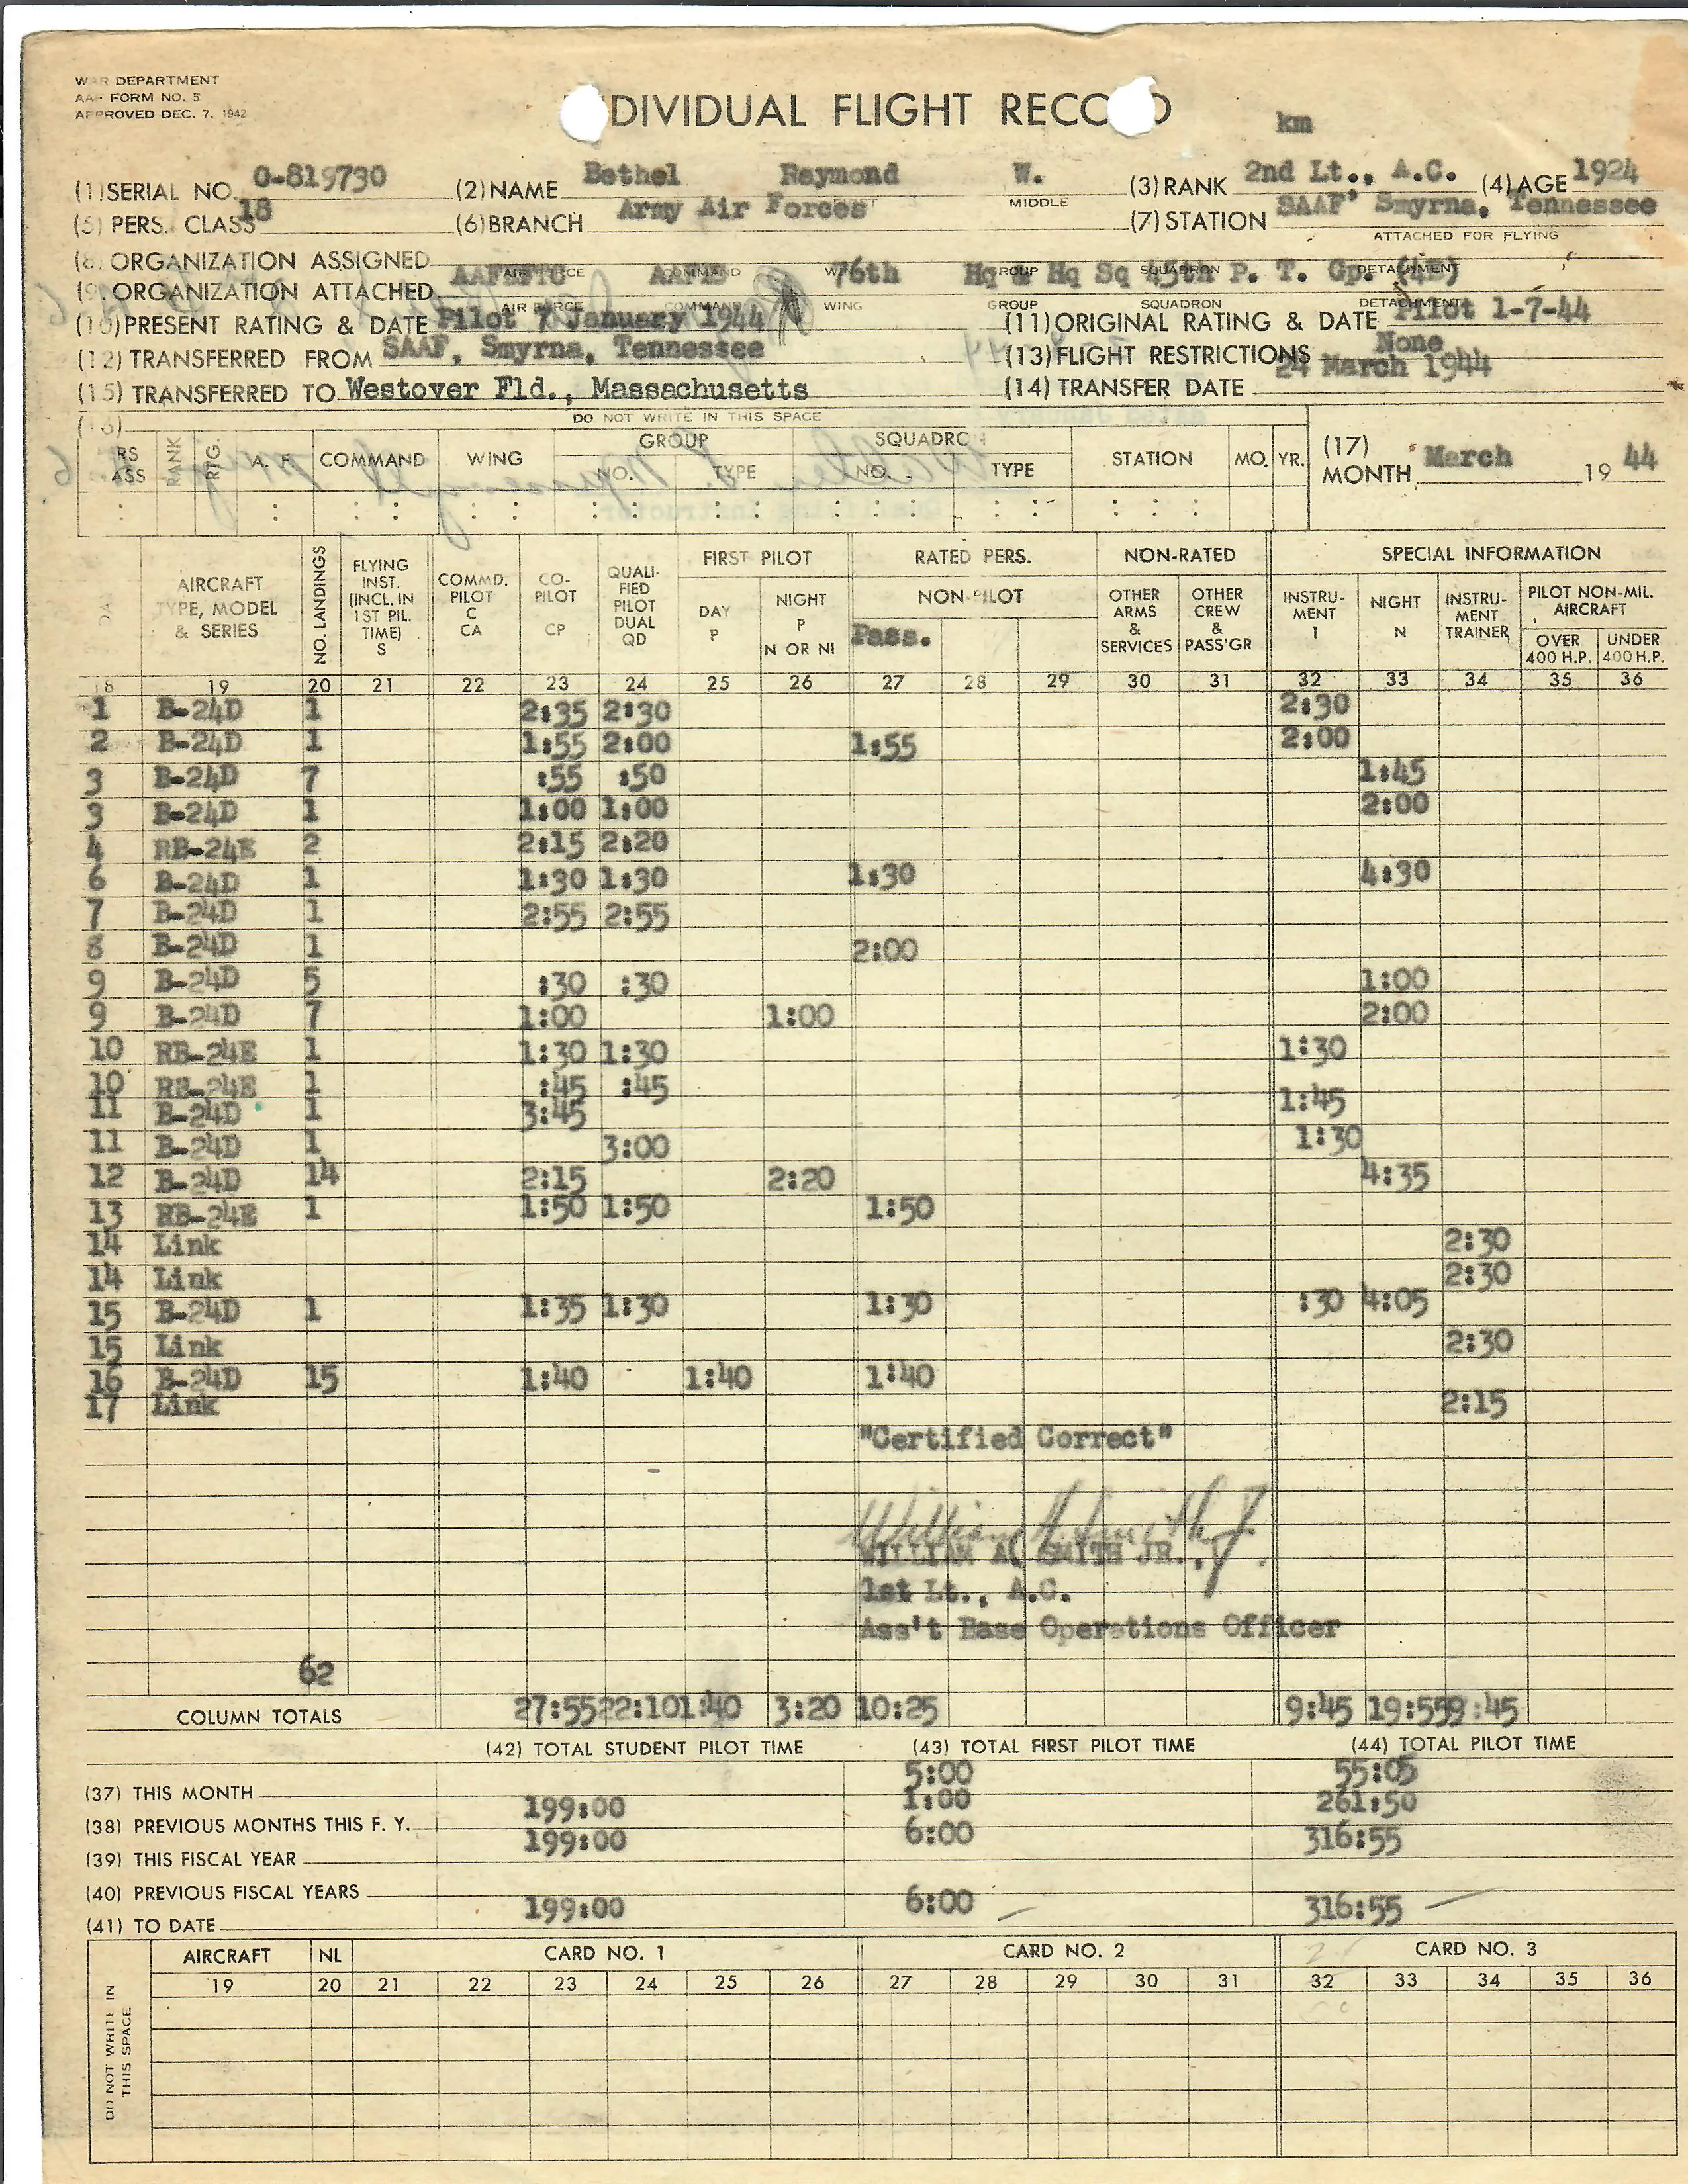 WAR DEPARTMENT
AAF FORM NO. 5
APPROVED DEC. 7, 1942
DIVIDUAL FLIGHT RECO D
km
(1) SERIAL NO. O-819730 (2) NAME Bethel Raymond W. MIDDLE (3) RANK 2nd Lt., A.C. (4) AGE 1924
(5) PERS. CLASS 18 (6) BRANCH Army Air Forces (7) STATION SAAF Smyrna, Tennessee
ATTACHED FOR FLYING
(8) ORGANIZATION ASSIGNED AAFEFTC AIR FORCE COMMAND 76th Hq & Hq Sq 45th P. T. Gp. (4E)
(9) ORGANIZATION ATTACHED AIR FORCE COMMAND WING GROUP SQUADRON DETACHMENT
(10) PRESENT RATING & DATE Pilot 7 January 1944 (11) ORIGINAL RATING & DATE Pilot 1-7-44
(12) TRANSFERRED FROM SAAF, Smyrna, Tennessee (13) FLIGHT RESTRICTIONS None
(15) TRANSFERRED TO Westover Fld., Massachusetts (14) TRANSFER DATE 24 March 1944
(16) DO NOT WRITE IN THIS SPACE
RS ASS RANK RTG. A. F. COMMAND WING GROUP NO. TYPE SQUADRON NO. TYPE STATION MO. YR. (17) MONTH March 19 44
FIRST PILOT RATED PERS. NON-RATED SPECIAL INFORMATION
DAY AIRCRAFT TYPE, MODEL & SERIES NO. LANDINGS FLYING INST. (INCL. IN 1ST PIL. TIME) S COMMD. PILOT C CA CO-PILOT CP QUALI-FIED PILOT DUAL QD DAY P NIGHT P N OR NI NON-PILOT Pass. OTHER ARMS & SERVICES OTHER CREW & PASS'GR INSTRU-MENT I NIGHT N INSTRU-MENT TRAINER PILOT NON-MIL. AIRCRAFT OVER 400 H.P. UNDER 400 H.P.
18 19 20 21 22 23 24 25 26 27 28 29 30 31 32 33 34 35 36
1 B-24D 1 2:35 2:30 2:30
2 B-24D 1 1:55 2:00 1:55 2:00
3 B-24D 7 :55 :50 1:45
3 B-24D 1 1:00 1:00 2:00
4 RB-24E 2 2:15 2:20
6 B-24D 1 1:30 1:30 1:30 4:30
7 B-24D 1 2:55 2:55
8 B-24D 1 2:00
9 B-24D 5 :30 :30 1:00
9 B-24D 7 1:00 1:00 2:00
10 RB-24E 1 1:30 1:30 1:30
10 RB-24E 1 :45 :45
11 B-24D 1 3:45 1:45
11 B-24D 1 3:00 1:30
12 B-24D 14 2:15 2:20 4:35
13 RB-24E 1 1:50 1:50 1:50
14 Link 2:30
14 Link 2:30
15 B-24D 1 1:35 1:30 1:30 :30 4:05
15 Link 2:30
16 B-24D 15 1:40 1:40 1:40
17 Link 2:15
"Certified Correct"
William A. Smith Jr.
WILLIAM A. SMITH JR.,
1st Lt., A.C.
Ass't Base Operations Officer
62
COLUMN TOTALS 27:55 22:10 1:40 3:20 10:25 9:45 19:55 9:45
(42) TOTAL STUDENT PILOT TIME (43) TOTAL FIRST PILOT TIME (44) TOTAL PILOT TIME
(37) THIS MONTH 5:00 55:05
(38) PREVIOUS MONTHS THIS F. Y. 199:00 1:00 261:50
(39) THIS FISCAL YEAR 199:00 6:00 316:55
(40) PREVIOUS FISCAL YEARS
(41) TO DATE 199:00 6:00 316:55
DO NOT WRITE IN THIS SPACE
AIRCRAFT NL CARD NO. 1 CARD NO. 2 CARD NO. 3
19 20 21 22 23 24 25 26 27 28 29 30 31 32 33 34 35 36